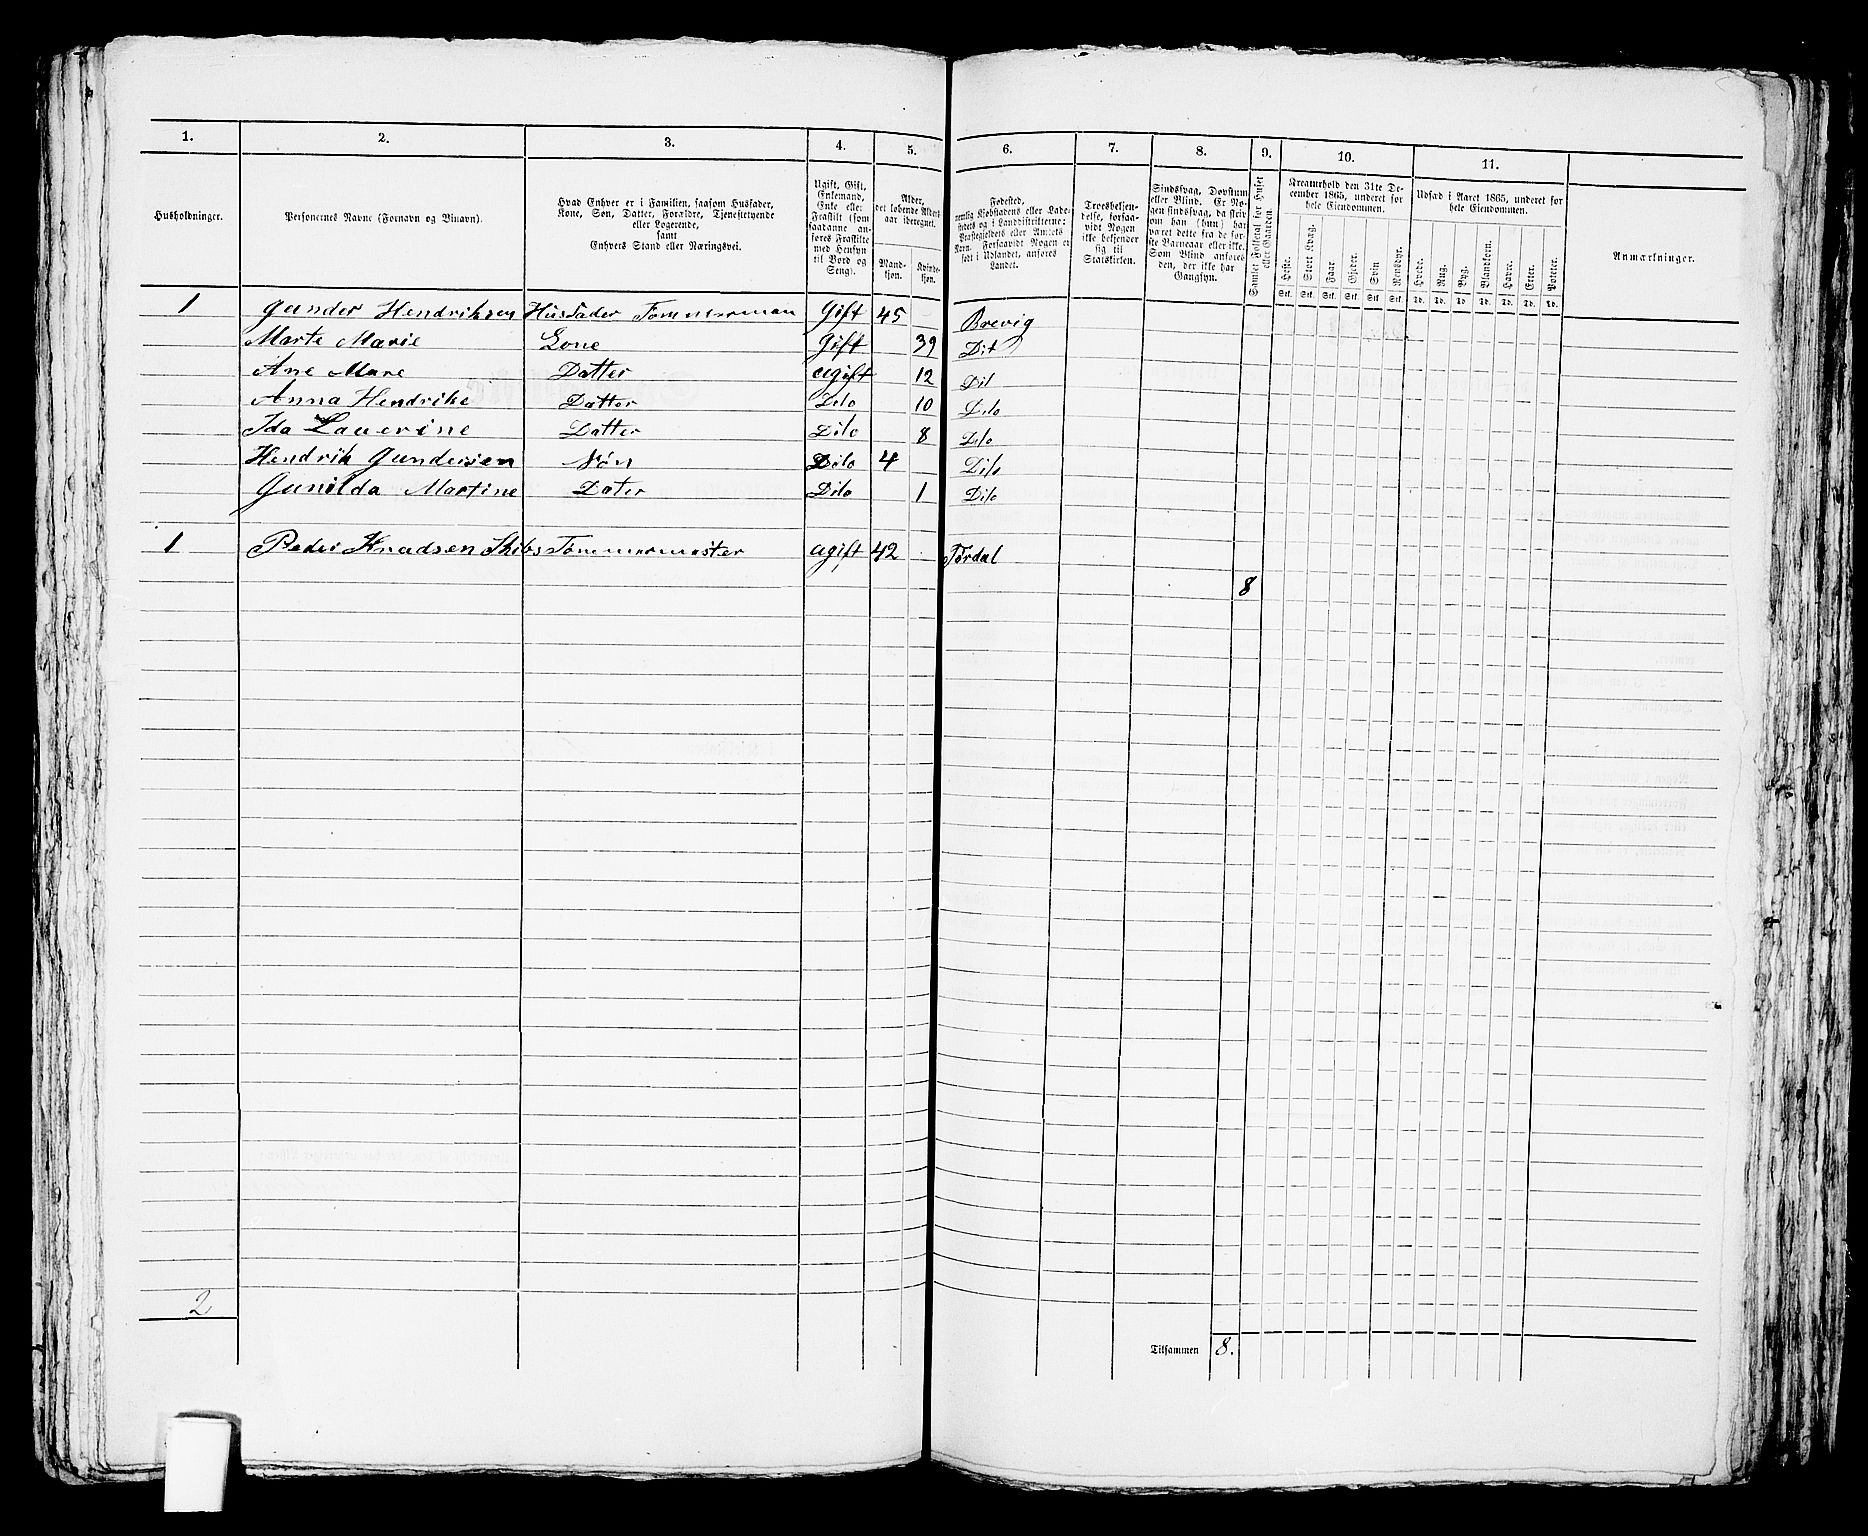 1. 2. 3. 4. 5. 6. 7. 8. 9. 10. 11.
Husholdninger.
Personernes Navne (Fornavn og Binavn).
Hvad Enhver er i Familien, saasom Husfader,
Kone, Søn, Datter, Forældre, Tjenestetyende
eller Logerende,
samt
Enhvers Stand eller Næringsvei.
Ugift, Gift,
Enkemand,
Enke eller
Fraskilt (som
saadanne an-
føres Fraskilte
med Hensyn
til Bord og
Seng).
Alder,
det løbende Alders-
aar iberegnet.
Mand-
kjøn.
Kvinde-
kjøn.
Fødested,
nemlig Kjøbstadens eller Lade-
stedets og i Landdistrikterne:
Præstegjeldets eller Amtets
Navn. Forsaavidt Nogen er
født i Udlandet, anføres
Landet.
Troesbekjen-
delse, forsaa-
vidt Nogen
ikke bekjender
sig til
Statskirken.
Sindssvag, Døvstum
eller Blind. Er No-
gen sindssvag, da skriv
om han (hun) har
været dette fra de før-
ste Barneaar eller ikke.
Som Blind anføres
den, der ikke har
Gangsyn.
Samlet Folketal for Huset
eller Gaarden.
Kreaturhold den 31te De-
cember 1865, underet for
hele Eiendommen.
Heste. Stort Kvæg. Faar Gjeder. Svin Rensdyr.
Stk. Stk. Stk. Stk. Stk. Stk.
Udsæd i Aaret 1865, underet for
hele Eiendommen.
Hvede. Rug. Byg. Blandkorn. Havre. Erter. Poteter.
Td. Td. Td Td. Td. Td. Td.
Anmærkninger.
1 Gunder Hendriksen Husfader Tømmerman Gift 45 Brevig
Marte Marie Gone Gift 39 Dit
Ane Mare Datter ugift 12 Dil
Anna Hendrike Datter Dito 10 Dito
Ida Laverine Datter Dito 8 Dito
Hendrik Gundersen Søn Dito 4 Dito
Gunilda Martine Dater Dito 1 Dito
1 Peder Knudsen Skibs Tømmermester ugift 42 Tørdal
8
2
Tilsammen 8.